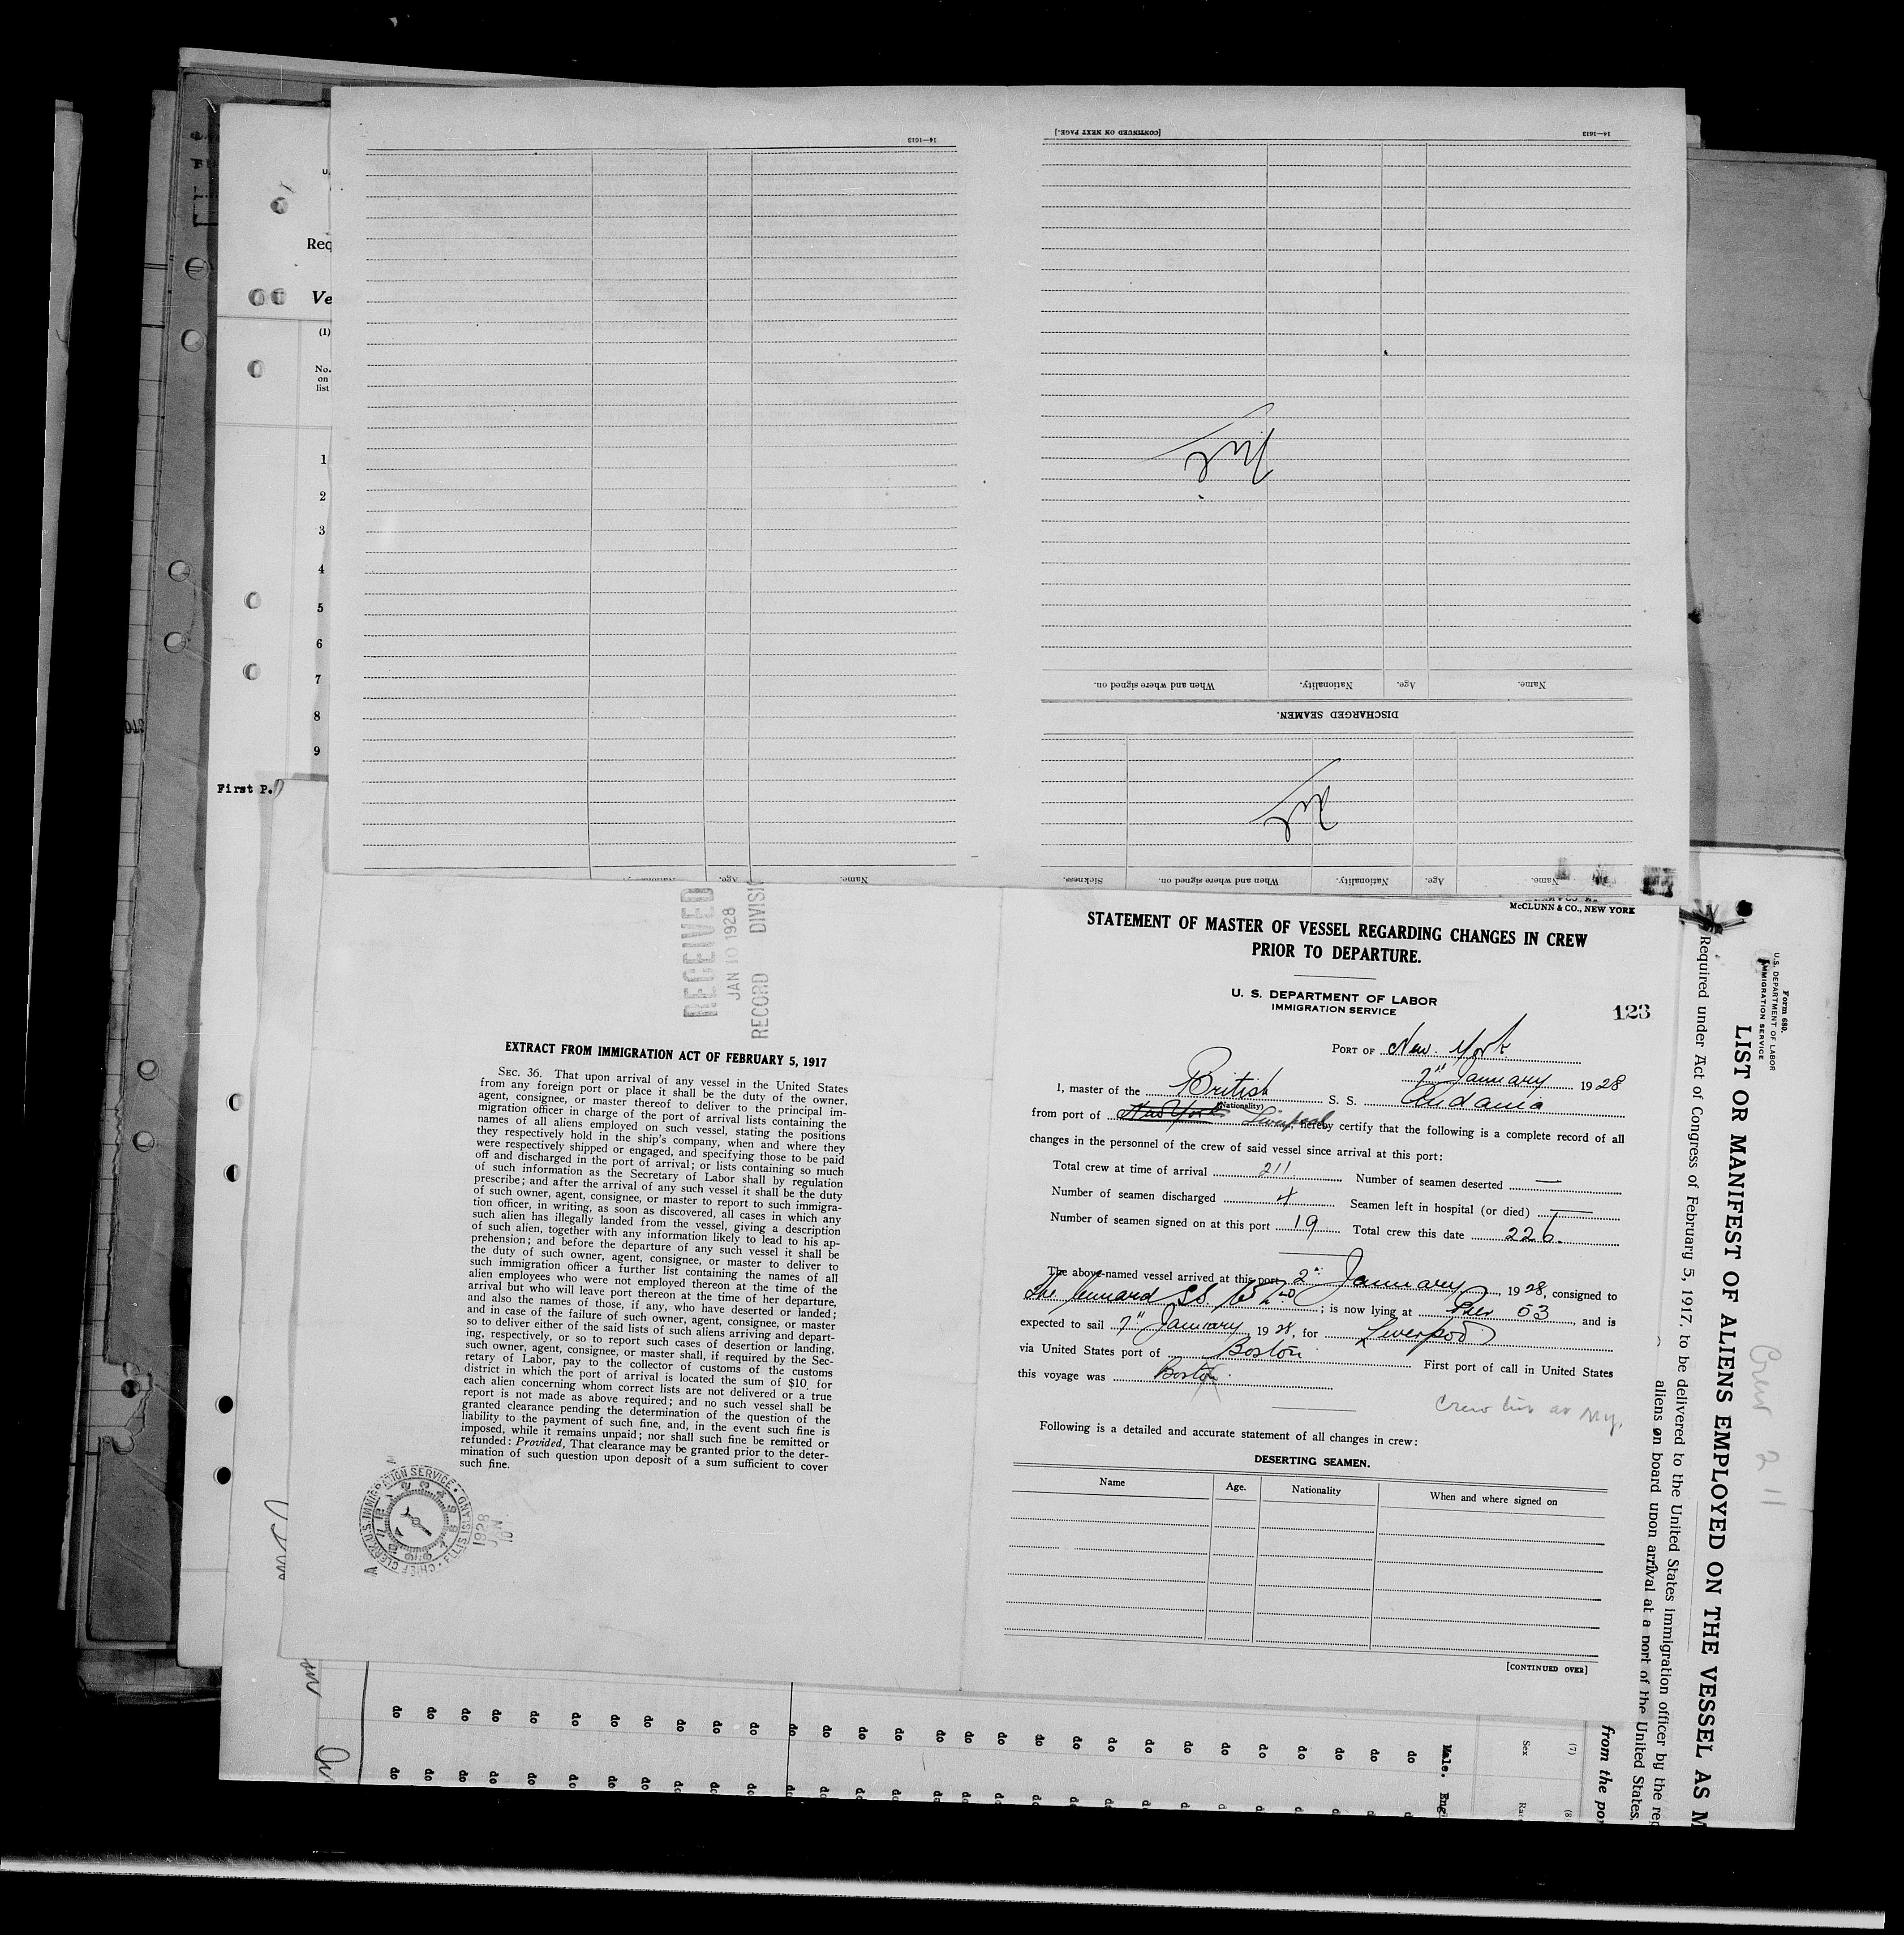 14—1613
[CONTINUED ON NEXT PAGE.]
14—1613
Nil
When and where signed on.
Nationality.
Age.
Name.
DISCHARGED SEAMEN.
Nil
Sickness.
When and where signed on.
Nationality.
Age.
Name.
Age.
Name.
Req
Ve
(1)
No.
on
list
1
2
3
4
5
6
7
8
9
First P.
RECEIVED
JAN 10 1928
RECORD DIVISI
EXTRACT FROM IMMIGRATION ACT OF FEBRUARY 5, 1917
SEC. 36. That upon arrival of any vessel in the United States
from any foreign port or place it shall be the duty of the owner,
agent, consignee, or master thereof to deliver to the principal im-
migration officer in charge of the port of arrival lists containing the
names of all aliens employed on such vessel, stating the positions
they respectively hold in the ship's company, when and where they
were respectively shipped or engaged, and specifying those to be paid
off and discharged in the port of arrival; or lists containing so much
of such information as the Secretary of Labor shall by regulation
prescribe; and after the arrival of any such vessel it shall be the duty
of such owner, agent, consignee, or master to report to such immigra-
tion officer, in writing, as soon as discovered, all cases in which any
such alien has illegally landed from the vessel, giving a description
of such alien, together with any information likely to lead to his ap-
prehension; and before the departure of any such vessel it shall be
the duty of such owner, agent, consignee, or master to deliver to
such immigration officer a further list containing the names of all
alien employees who were not employed thereon at the time of the
arrival but who will leave port thereon at the time of her departure,
and also the names of those, if any, who have deserted or landed;
and in case of the failure of such owner, agent, consignee, or master
so to deliver either of the said lists of such aliens arriving and depart-
ing, respectively, or so to report such cases of desertion or landing,
such owner, agent, consignee, or master shall, if required by the Sec-
retary of Labor, pay to the collector of customs of the customs
district in which the port of arrival is located the sum of $10 for
each alien concerning whom correct lists are not delivered or a true
report is not made as above required; and no such vessel shall be
granted clearance pending the determination of the question of the
liability to the payment of such fine, and, in the event such fine is
imposed, while it remains unpaid; nor shall such fine be remitted or
refunded: Provided, That clearance may be granted prior to the deter-
mination of such question upon deposit of a sum sufficient to cover
such fine.
CHIEF CLERK U.S. IMMIGRATION SERVICE · ELLIS ISLAND
1928
JAN
10
McCLUNN & CO., NEW YORK
STATEMENT OF MASTER OF VESSEL REGARDING CHANGES IN CREW
PRIOR TO DEPARTURE.
U. S. DEPARTMENT OF LABOR
IMMIGRATION SERVICE
123
PORT OF New York
7th January 1928
I, master of the British S. S. Andania
(Nationality)
from port of New York Liverpool hereby certify that the following is a complete record of all
changes in the personnel of the crew of said vessel since arrival at this port:
Total crew at time of arrival 211 Number of seamen deserted —
Number of seamen discharged 4 Seamen left in hospital (or died) —
Number of seamen signed on at this port 19 Total crew this date 226.
The above-named vessel arrived at this port 2" January, 1928, consigned to
The Cunard SS Co Ltd; is now lying at Pier 53, and is
expected to sail 7" January, 1928, for Liverpool
via United States port of Boston First port of call in United States
this voyage was Boston.
Crew list at N.Y.
Following is a detailed and accurate statement of all changes in crew:
DESERTING SEAMEN.
Name Age. Nationality When and where signed on
[CONTINUED OVER]
Form 680.
U.S. DEPARTMENT OF LABOR
IMMIGRATION SERVICE
LIST OR MANIFEST OF ALIENS EMPLOYED ON THE VESSEL AS M
Required under Act of Congress of February 5, 1917, to be delivered to the United States immigration officer by the rep
aliens on board upon arrival at a port of the United States.
Crew 211
from the por
(7)
(8)
Sex
Rac
Male. Eng
do do do do do do do do do do do do do do do do do do do do do do do do do do do do do
do do do do do do do do do do do do do do do do do do do do do do do do do do do do do